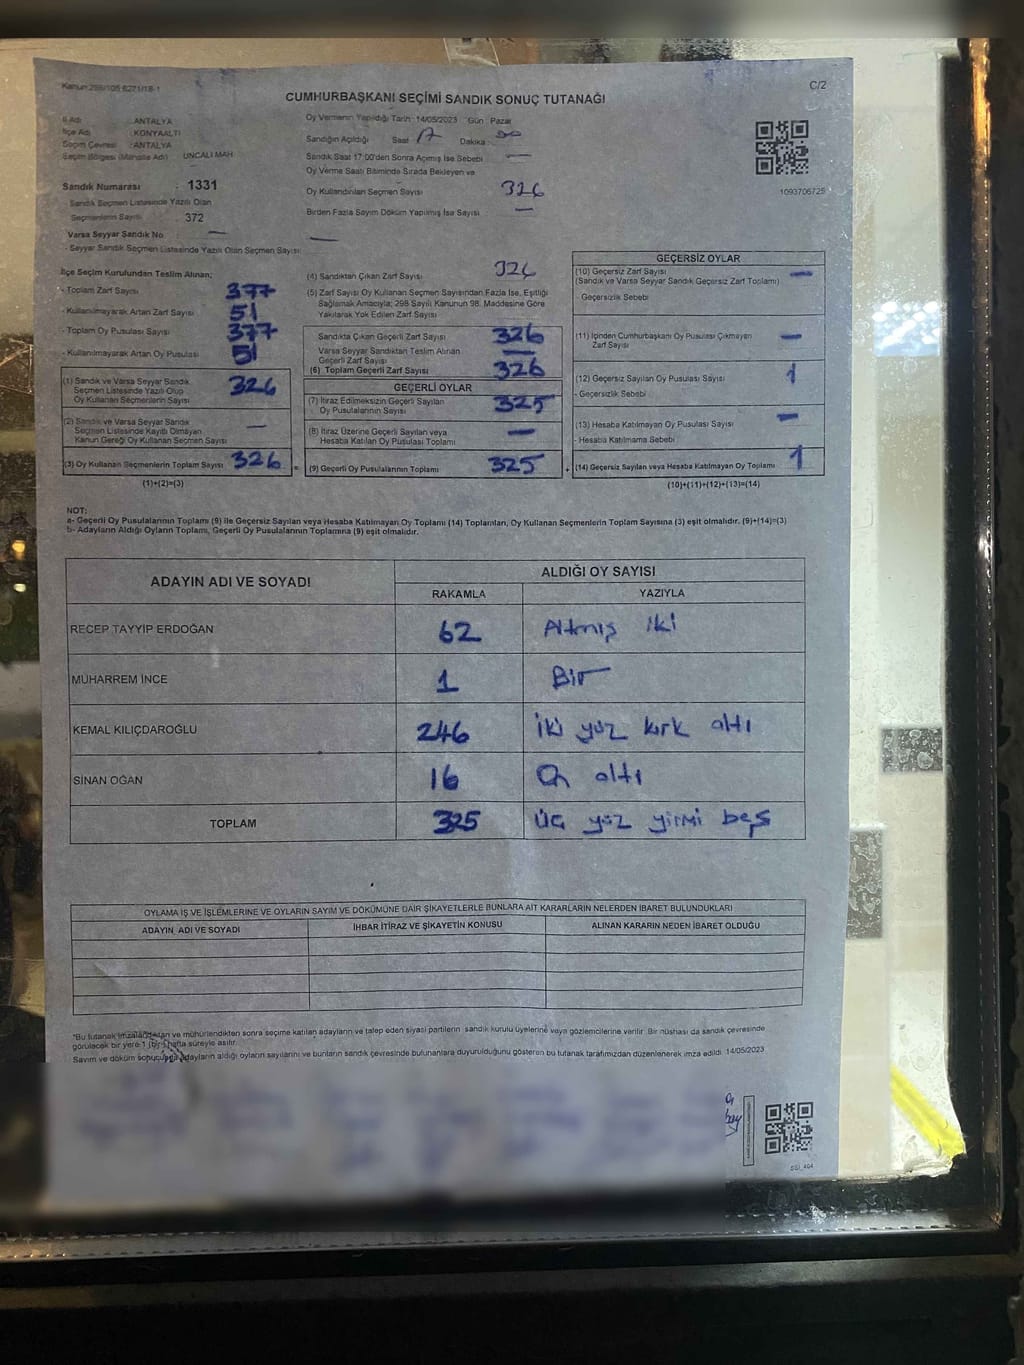 Kanun:298/105 6271/18-1
C/2
CUMHURBAŞKANI SEÇİMİ SANDIK SONUÇ TUTANAĞI
İl Adı : ANTALYA
İlçe Adı : KONYAALTI
Seçim Çevresi : ANTALYA
Seçim Bölgesi (Mahalle Adı) UNCALI MAH
Sandık Numarası : 1331
Sandık Seçmen Listesinde Yazılı Olan
Seçmenlerin Sayısı : 372
Varsa Seyyar Sandık No : —
- Seyyar Sandık Seçmen Listesinde Yazılı Olan Seçmen Sayısı: —
Oy Vermenin Yapıldığı Tarih :14/05/2023 Gün : Pazar
Sandığın Açıldığı Saat 17 Dakika : 00
Sandık Saat 17.00'den Sonra Açılmış İse Sebebi —
Oy Verme Saati Bitiminde Sırada Bekleyen ve
Oy Kullandırılan Seçmen Sayısı 326
Birden Fazla Sayım Döküm Yapılmış İse Sayısı —
1093706725
İlçe Seçim Kurulundan Teslim Alınan;
- Toplam Zarf Sayısı 377
- Kullanılmayarak Artan Zarf Sayısı 51
- Toplam Oy Pusulası Sayısı 377
- Kullanılmayarak Artan Oy Pusulası 51
(1) Sandık ve Varsa Seyyar Sandık
Seçmen Listesinde Yazılı Olup
Oy Kullanan Seçmenlerin Sayısı 326
(2) Sandık ve Varsa Seyyar Sandık
Seçmen Listesinde Kayıtlı Olmayan
Kanun Gereği Oy Kullanan Seçmen Sayısı —
(3) Oy Kullanan Seçmenlerin Toplam Sayısı 326
(1)+(2)=(3)
(4) Sandıktan Çıkan Zarf Sayısı 326
(5) Zarf Sayısı Oy Kullanan Seçmen Sayısından Fazla İse, Eşitliği
Sağlamak Amacıyla; 298 Sayılı Kanunun 98. Maddesine Göre
Yakılarak Yok Edilen Zarf Sayısı
Sandıkta Çıkan Geçerli Zarf Sayısı 326
Varsa Seyyar Sandıktan Teslim Alınan
Geçerli Zarf Sayısı —
(6) Toplam Geçerli Zarf Sayısı 326
GEÇERLİ OYLAR
(7) İtiraz Edilmeksizin Geçerli Sayılan
Oy Pusulalarının Sayısı 325
(8) İtiraz Üzerine Geçerli Sayılan veya
Hesaba Katılan Oy Pusulası Toplamı —
(9) Geçerli Oy Pusulalarının Toplamı 325
GEÇERSİZ OYLAR
(10) Geçersiz Zarf Sayısı —
(Sandık ve Varsa Seyyar Sandık Geçersiz Zarf Toplamı)
- Geçersizlik Sebebi
(11) İçinden Cumhurbaşkanı Oy Pusulası Çıkmayan
Zarf Sayısı —
(12) Geçersiz Sayılan Oy Pusulası Sayısı 1
- Geçersizlik Sebebi
(13) Hesaba Katılmayan Oy Pusulası Sayısı —
- Hesaba Katılmama Sebebi
(14) Geçersiz Sayılan veya Hesaba Katılmayan Oy Toplamı 1
(10)+(11)+(12)+(13)=(14)
NOT:
a- Geçerli Oy Pusulalarının Toplamı (9) ile Geçersiz Sayılan veya Hesaba Katılmayan Oy Toplamı (14) Toplamları, Oy Kullanan Seçmenlerin Toplam Sayısına (3) eşit olmalıdır. (9)+(14)=(3)
b- Adayların Aldığı Oyların Toplamı, Geçerli Oy Pusulalarının Toplamına (9) eşit olmalıdır.
ADAYIN ADI VE SOYADI ALDIĞI OY SAYISI
RAKAMLA YAZIYLA
RECEP TAYYİP ERDOĞAN 62 Altmış iki
MUHARREM İNCE 1 Bir
KEMAL KILIÇDAROĞLU 246 İki yüz kırk altı
SİNAN OĞAN 16 On altı
TOPLAM 325 üç yüz yirmi beş
OYLAMA İŞ VE İŞLEMLERİNE VE OYLARIN SAYIM VE DÖKÜMÜNE DAİR ŞİKAYETLERLE BUNLARA AİT KARARLARIN NELERDEN İBARET BULUNDUKLARI
ADAYIN ADI VE SOYADI İHBAR İTİRAZ VE ŞİKAYETİN KONUSU ALINAN KARARIN NEDEN İBARET OLDUĞU
*Bu tutanak imzalandıktan ve mühürlendikten sonra seçime katılan adayların ve talep eden siyasi partilerin sandık kurulu üyelerine veya gözlemcilerine verilir. Bir nüshası da sandık çevresinde
görülecek bir yere 1 (bir) hafta süreyle asılır.
Sayım ve döküm sonucunda adayların aldığı oyların sayılarını ve bunların sandık çevresinde bulunanlara duyurulduğunu gösteren bu tutanak tarafımızdan düzenlenerek imza edildi. 14/05/2023
SSI_404